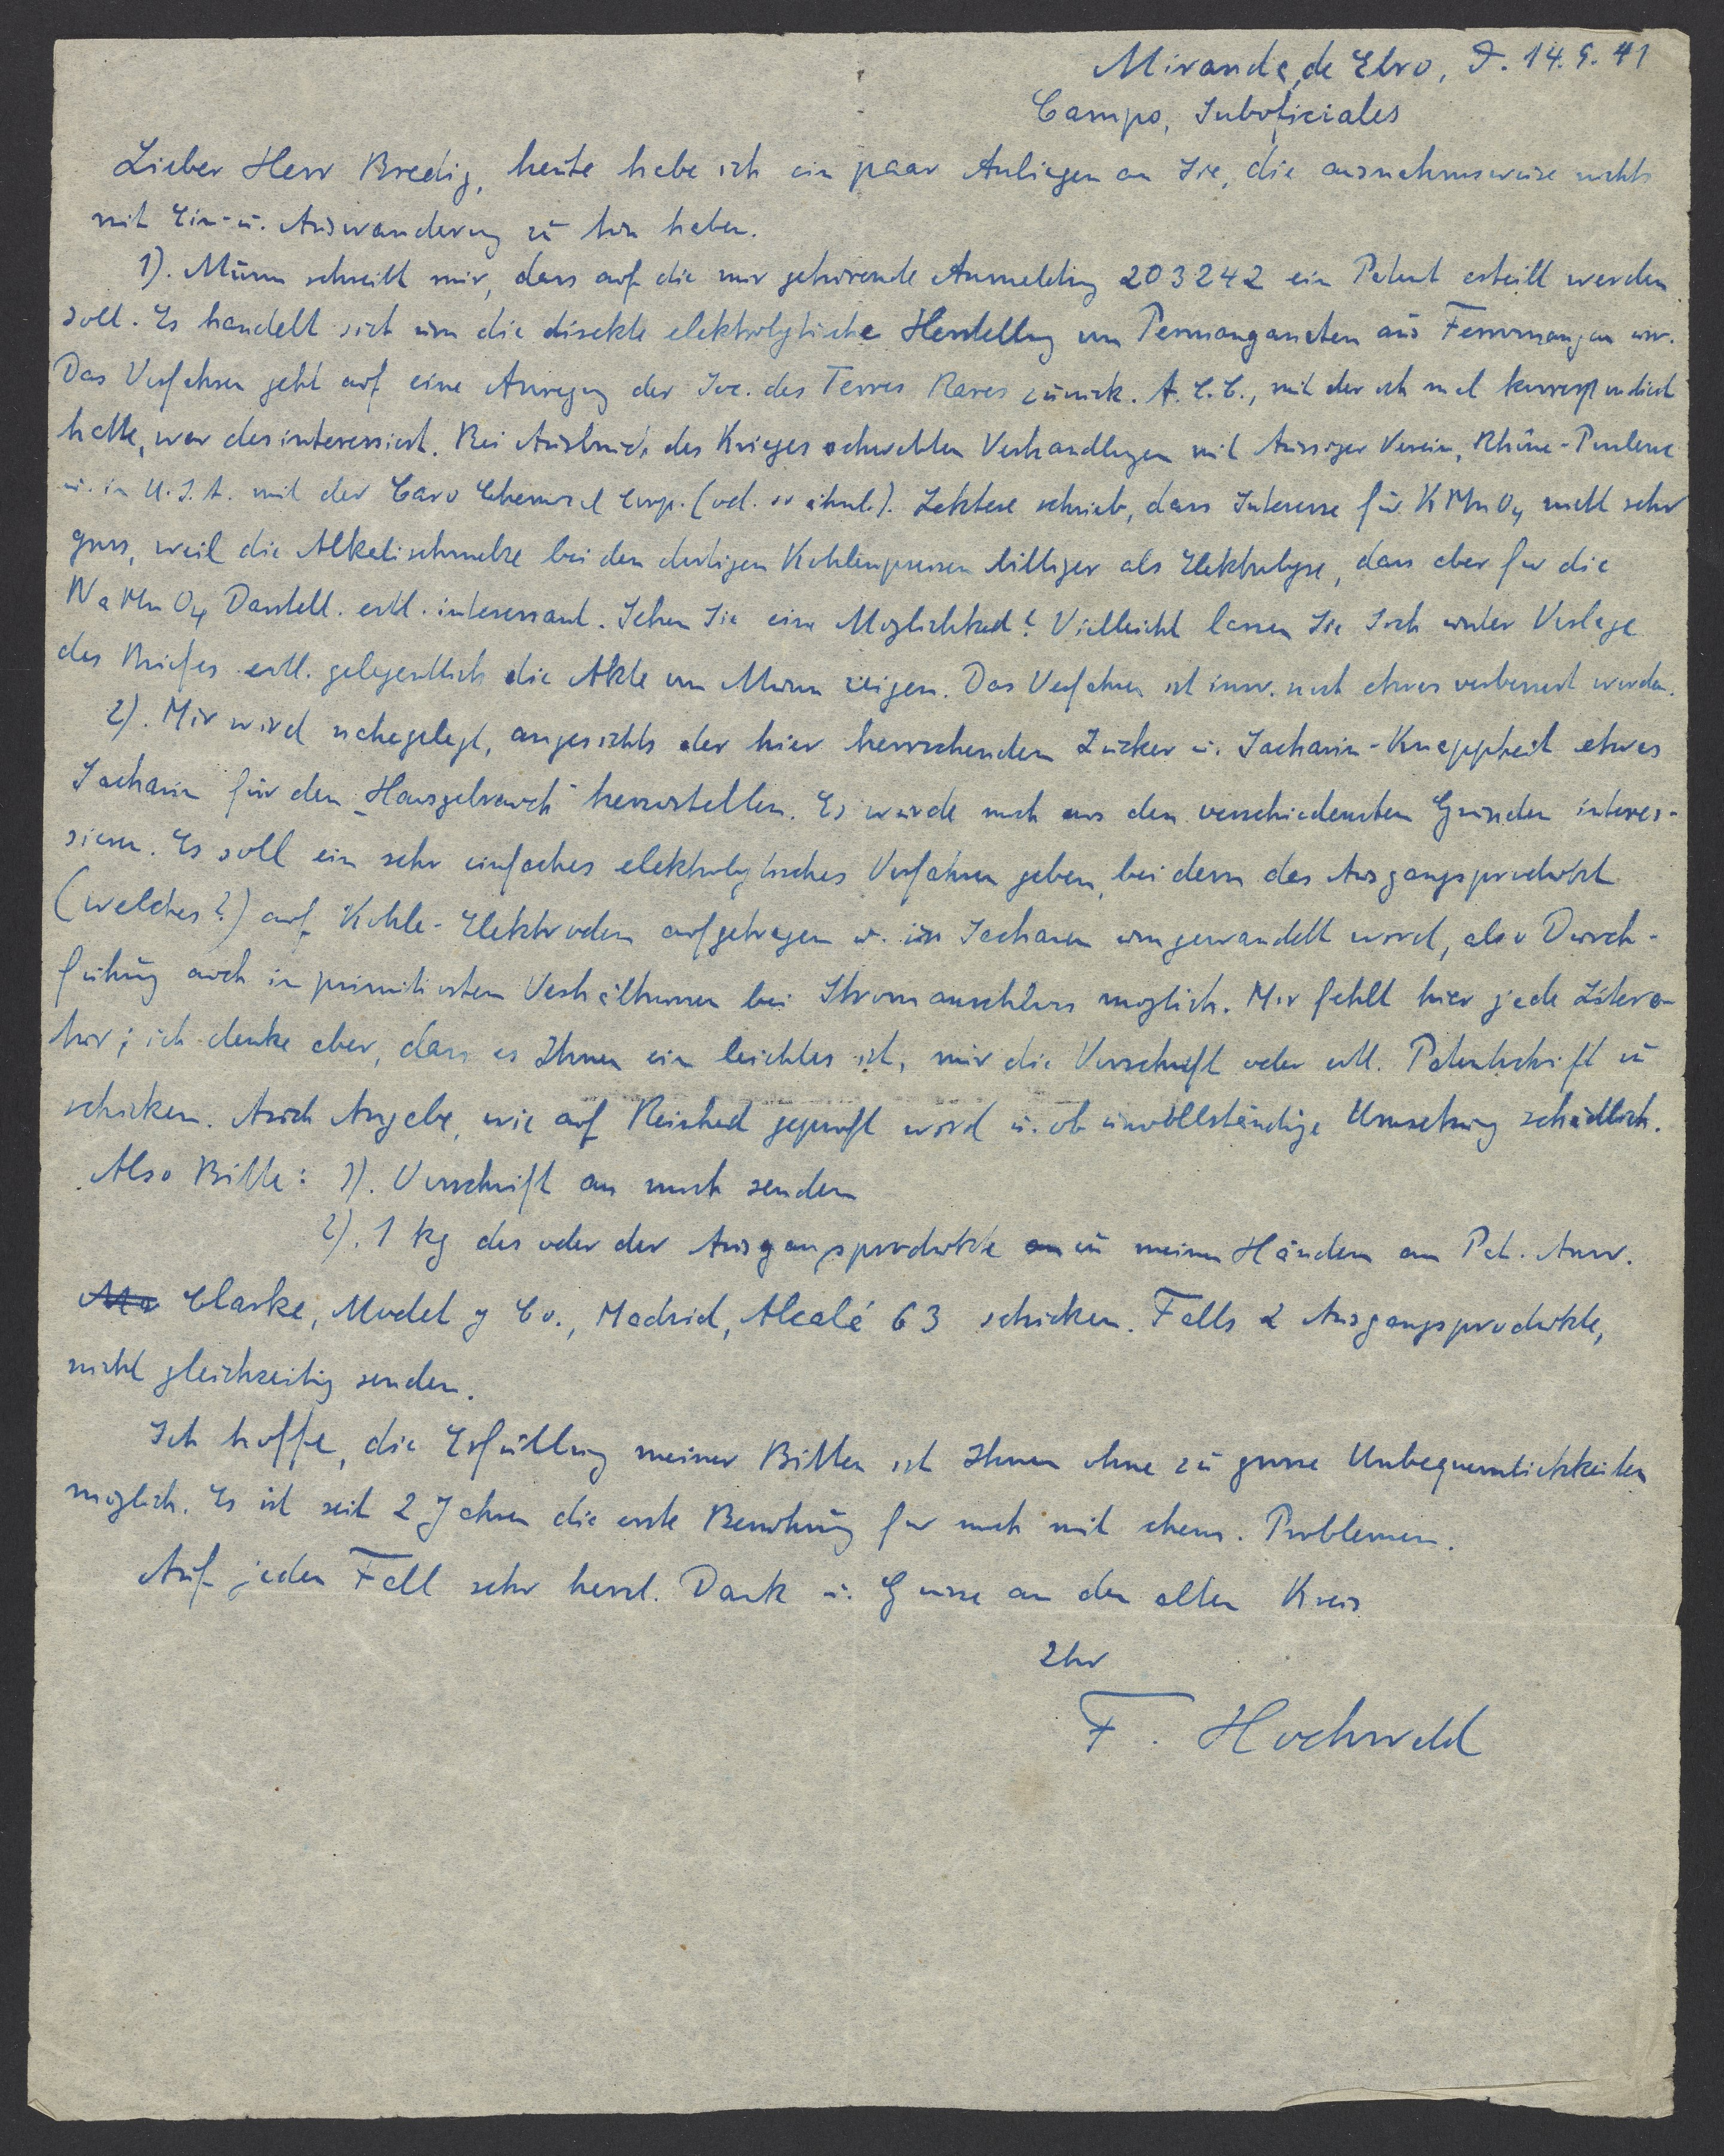 Miranda de Ebro, D. 14.9.41
Campo, Suboficiales
Lieber Herr Bredig, heute habe ich ein paar Anliegen an Sie, die ausnahmsweise nichts
mit Ein- u. Auswanderung zu tun haben.
1). Munn schreibt mir, dass auf die mir gehörende Anmeldung 203242 ein Patent erteilt werden
soll. Es handelt sich um die direkte elektrolytische Herstellung von Permanganaten aus Ferromangan usw.
Das Verfahren geht auf eine Anregung der Soc. des Terres Rares zurück. A.E.C., mit der ich mal korrespondiert
hatte, war desinteressiert. Bei Ausbruch des Krieges schwebten Verhandlungen mit Aussiger Verein, Rhône-Poulenc
u. in U.S.A. mit der Caro Chemical Corp. (od. so ähnl.). Letztere schrieb, dass Interesse für KMnO4 nicht sehr
gross, weil die Alkalischmelze bei den dortigen Kohlenpreisen billiger als Elektrolyse, dass aber für die
NaMnO4 Darstell. evtl. interessant. Sehen Sie eine Möglichkeit? Vielleicht lassen Sie sich unter Vorlage
des Briefes evtl. gelegentlich die Akte von Munn zeigen. Das Verfahren ist inzw. noch etwas verbessert worden.
2). Mir wird nahegelegt, angesichts der hier herrschenden Zucker u. Sacharin-Knappheit etwas
Sacharin für den „Hausgebrauch" herzustellen. Es würde mich aus den verschiedensten Gründen interes-
sieren. Es soll ein sehr einfaches elektrolytisches Verfahren geben, bei dem das Ausgangsprodukt
(welches?) auf Kohle-Elektroden aufgetragen u. in Sacharin umgewandelt wird, also Durch-
führung auch in primitivsten Verhältnissen bei Stromanschluss möglich. Mir fehlt hier jede Litera-
tur; ich denke aber, dass es Ihnen ein leichtes ist, mir die Vorschrift oder evtl. Patentschrift zu
schicken. Auch Angabe, wie auf Reinheit geprüft wird u. ob unvollständige Umsetzung schädlich.
Also Bitte: 1). Vorschrift an mich senden
2). 1 kg des oder der Ausgangsprodukte zu meinen Händen an Pat. Anw.
Clarke, Modet y Co., Madrid, Alcalá 63 schicken. Falls 2 Ausgangsprodukte,
nicht gleichzeitig senden.
Ich hoffe, die Erfüllung meiner Bitten ist Ihnen ohne zu grosse Unbequemlichkeiten
möglich. Es ist seit 2 Jahren die erste Berührung für mich mit chem. Problemen.
Auf jeden Fall sehr herzl. Dank u. Grüsse an den alten Kreis
Ihr
F. Hochwald